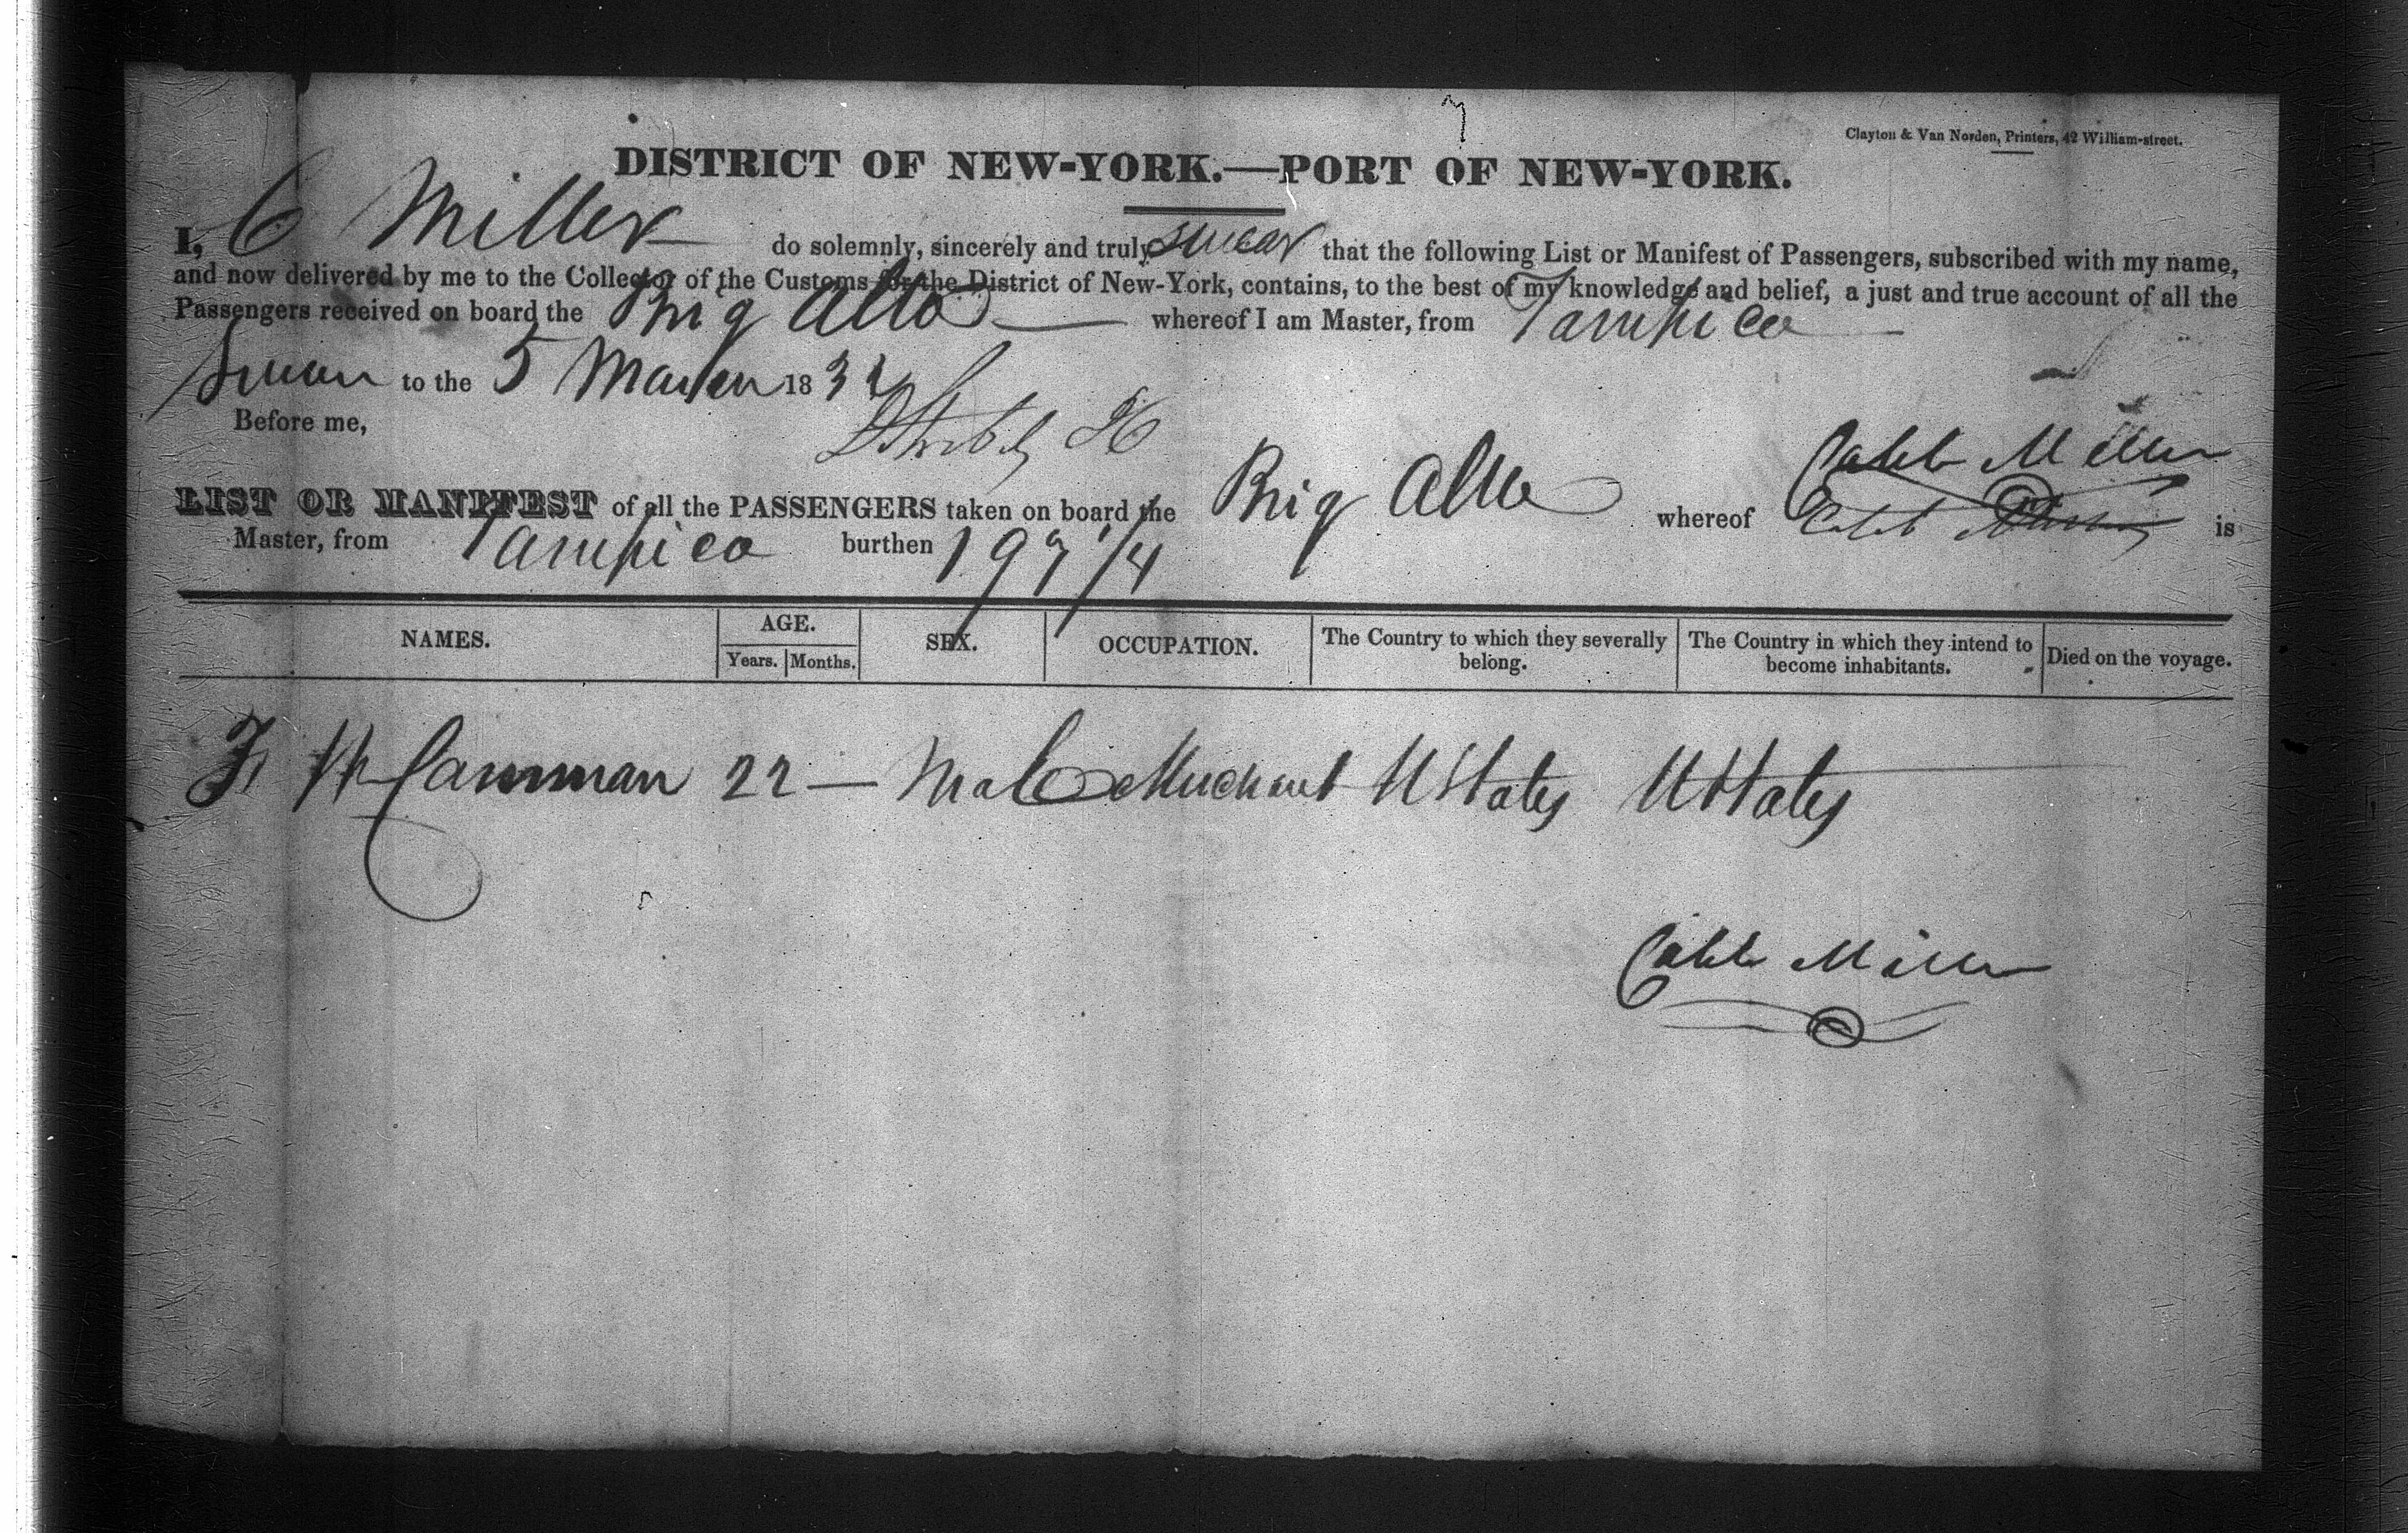 7
Clayton & Van Norden, Printers, 42 William-street.
DISTRICT OF NEW-YORK.—PORT OF NEW-YORK.
I, C Miller do solemnly, sincerely and truly swear that the following List or Manifest of Passengers, subscribed with my name,
and now delivered by me to the Collector of the Customs for the District of New-York, contains, to the best of my knowledge and belief, a just and true account of all the
Passengers received on board the Brig Alto whereof I am Master, from Tampico
Sworn to the 5 March 183
Before me,
Caleb Miller
LIST OR MANIFEST of all the PASSENGERS taken on board the Brig whereof Caleb is
Master, from Tampico burthen
NAMES. AGE. Years. Months. SEX. OCCUPATION. The Country to which they severally belong. The Country in which they intend to become inhabitants. Died on the voyage.
Camman 22 — Male Merchant U States U States
Caleb Miller